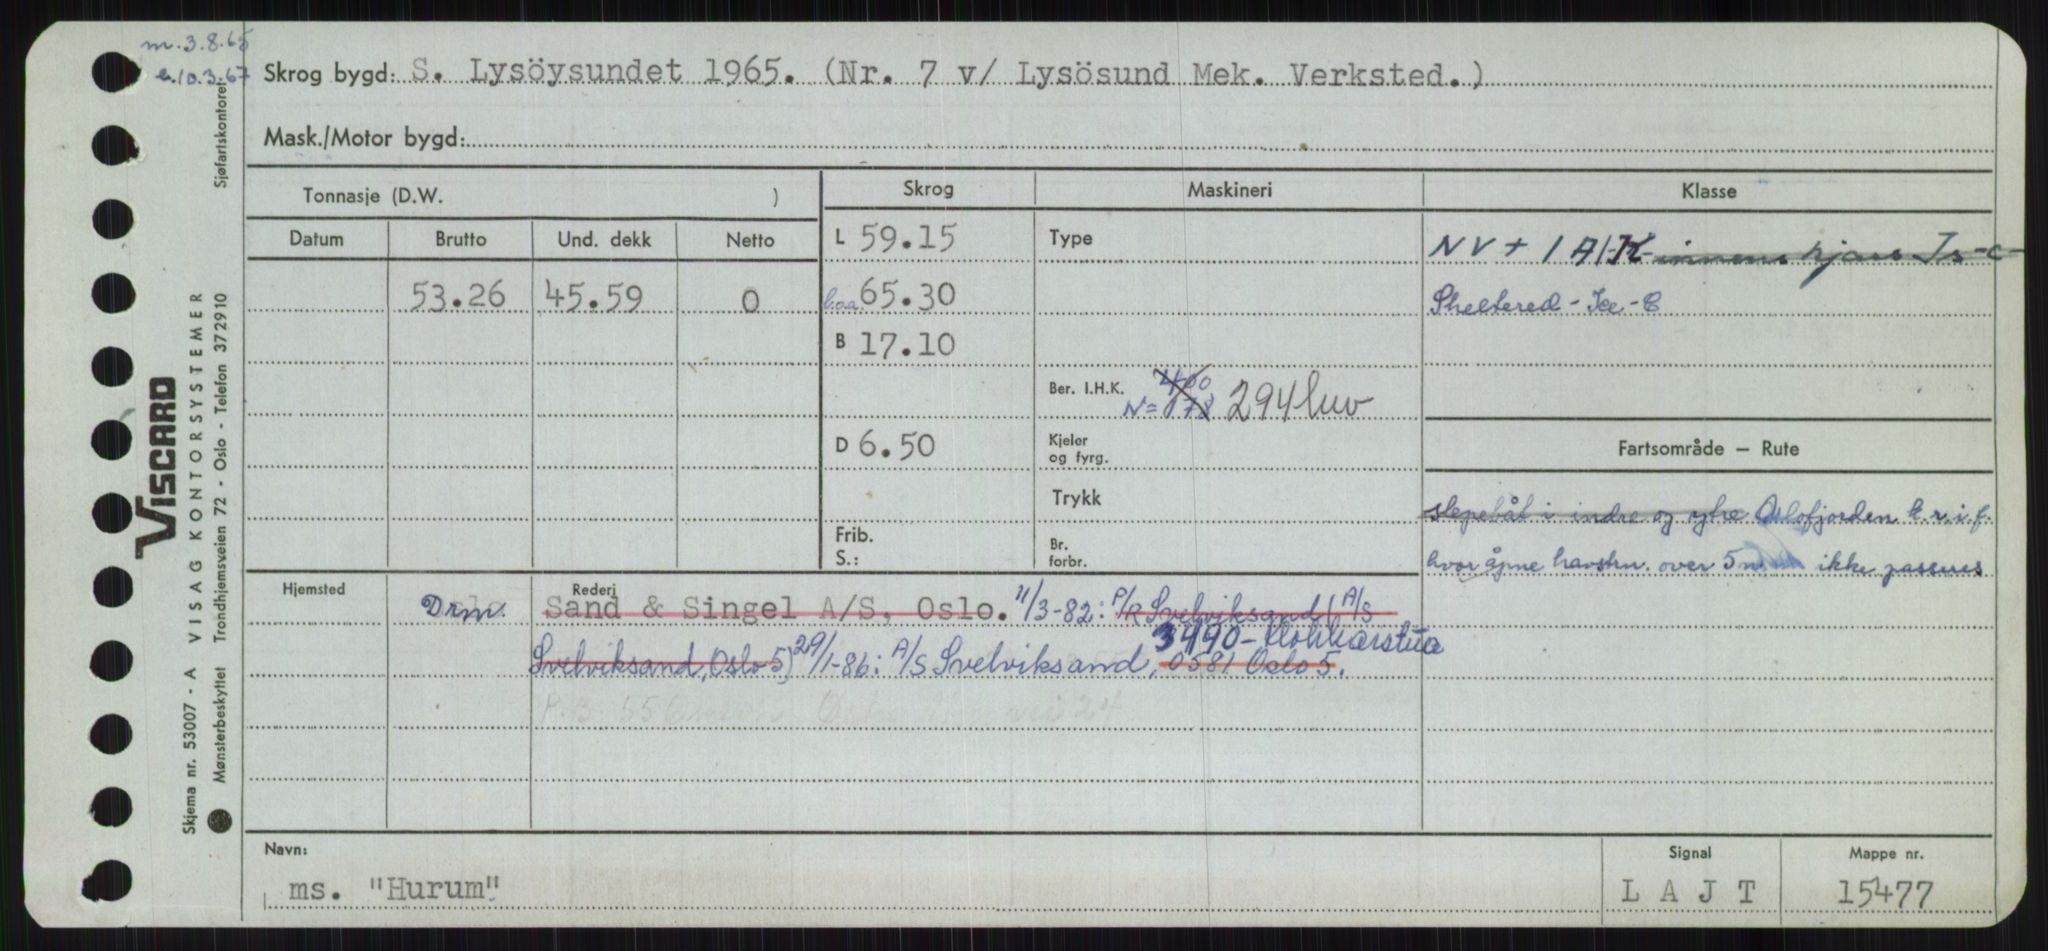 m. 3.8.65
b. 10.3.67
Skrog bygd: S. Lysöysundet 1965. (Nr. 7 v/ Lysösund Mek. Verksted.)
Mask./Motor bygd:
Tonnasje (D.W. )
Skrog
Maskineri
Klasse
Datum Brutto Und. dekk Netto
L 59.15
Type
NV + 1A1-K innenskjærs Is-C
53.26 45.59 0
b.o.a. 65.30
Sheltered - Ice - C
B 17.10
Ber. I.H.K. 400
N= 178 294 kw
D 6.50
Kjeler
og fyrg.
Fartsområde – Rute
Trykk
slepebåt i indre og ytre Oslofjorden k.v.i.f.
Frib.
S.:
Br.
forbr.
hvor åpne havstrn. over 5 ikke passeres
Hjemsted
Rederi
Drm. Sand & Singel A/S, Oslo. 11/3-82: P/R Svelviksand (A/S
3490 - Klokkarstua
Svelviksand, Oslo 5) 29/1-86: A/S Svelviksand, 0581 Oslo 5.
Navn:
ms. "Hurum"
Signal
LAJT
Mappe nr.
15477
Sjøfartskontoret
VISCARD
VISAG KONTORSYSTEMER
Trondhjemsveien 72 - Oslo - Telefon 372910
Skjema nr. 53007 - A
Mønsterbeskyttet